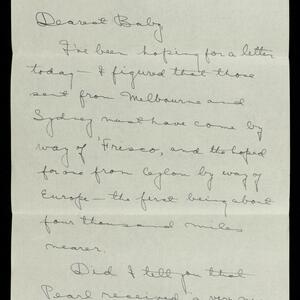 Dearest Baby
I've been hoping for a letter
today — I figured that those
sent from Melbourne and
Sydney must have come by
way of 'Frisco, and the hoped
for one from Ceylon by way of
Europe — the first being about
four thousand miles
nearer.
Did I tell you that
Pearl received a very